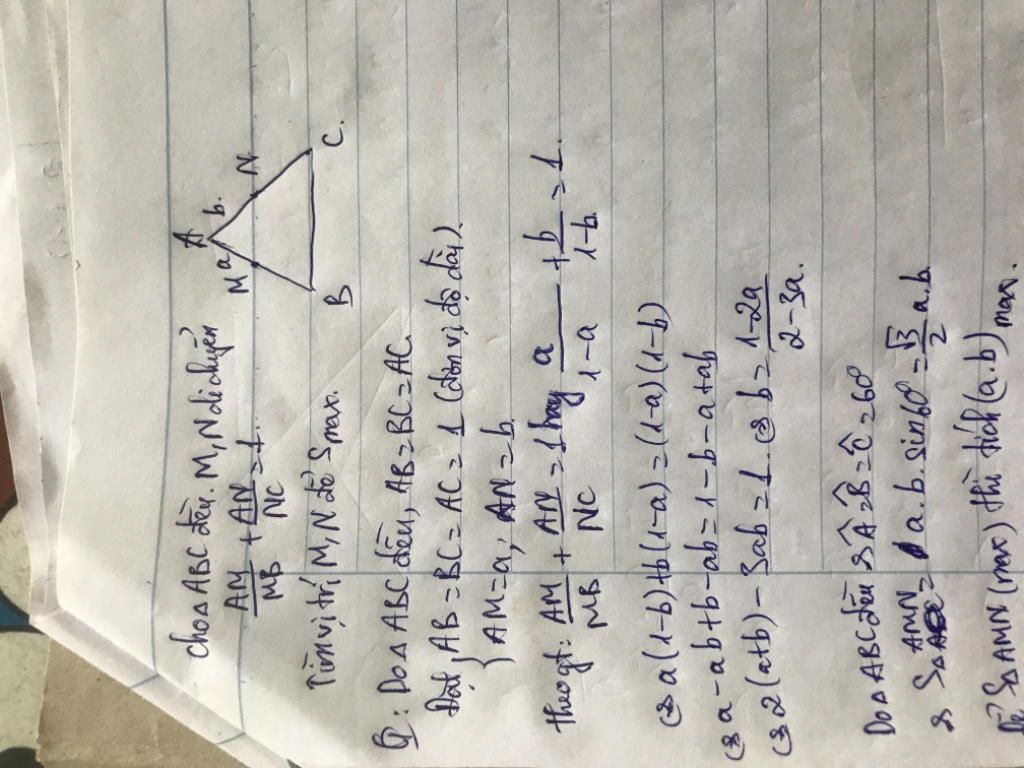 Cho Δ ABC đều. M, N di chuyển
AM/MB + AN/NC = 1.
Tìm vị trí M, N để S max.
A
M a b. N
B C.
G: Do Δ ABC đều, AB = BC = AC.
Đặt AB = BC = AC = 1 (đơn vị độ dài)
{ AM = a, AN = b.
theo gt: AM/MB + AN/NC = 1 hay a/1-a + b/1-b = 1.
⇔ a(1-b) + b(1-a) = (1-a)(1-b)
⇔ a - ab + b - ab = 1 - b - a + ab
⇔ 2(a+b) - 3ab = 1. ⇔ b = 1-2a/2-3a.
Do Δ ABC đều ⇒ Â = B̂ = Ĉ = 60°
⇒ SΔ AMN = a.b. sin 60° = √3/2 a.b.
Để SΔ AMN (max) thì tích (a.b) max.